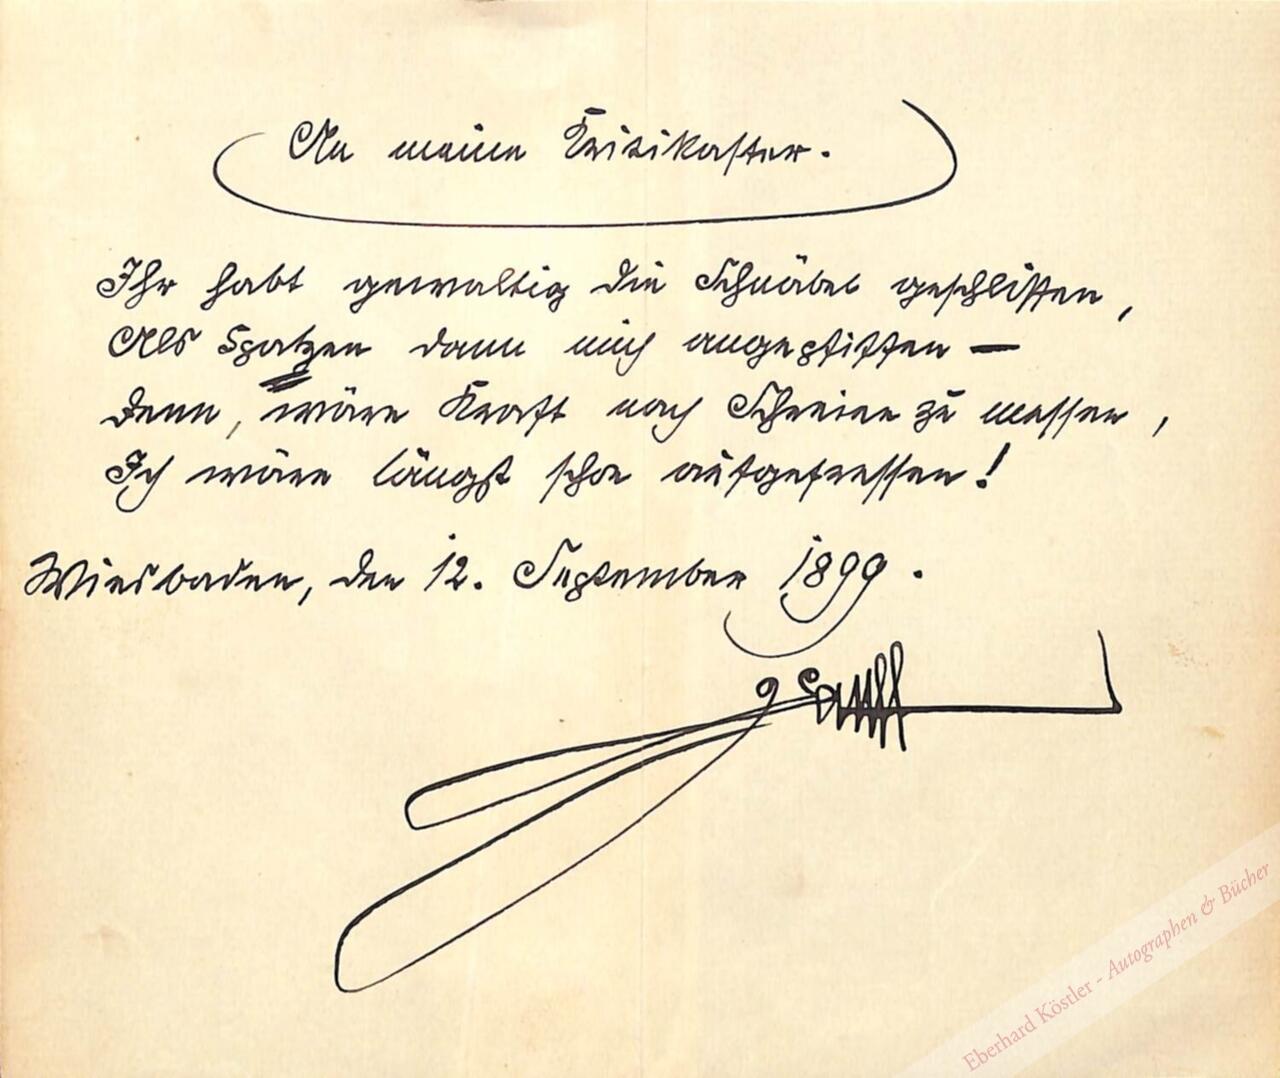 An meine Kritikaster.
Ihr habt gewaltig die Schnäbel geschliffen,
Als Spatzen dann mich angepfiffen —
Denn, wäre Kraft nach Schreien zu messen,
Ich wäre längst schon aufgefressen!
Wiesbaden, den 12. September 1899.
J Lauff
Eberhard Köstler - Autographen & Bücher